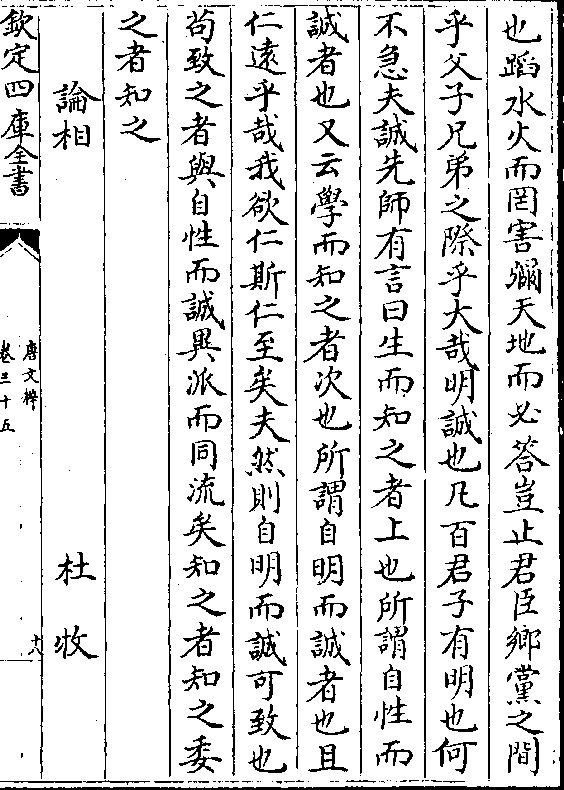 也蹈水火而罔害彌天地而必答豈止君臣鄉黨之間
乎父子兄弟之際乎大哉明誠也凡百君子有明也何
不急夫誠先師有言曰生而知之者上也所謂自性而
誠者也又云學而知之者次也所謂自明而誠者也且
仁遠乎哉我欲仁斯仁至矣夫然則自明而誠可致也
苟致之者與自性而誠異派而同流矣知之者知之委
之者知之
論相 杜牧
欽定四庫全書
唐文粹
卷三十五
十八